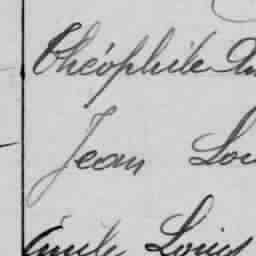 Théophile
Jean Lou
Émile Louis